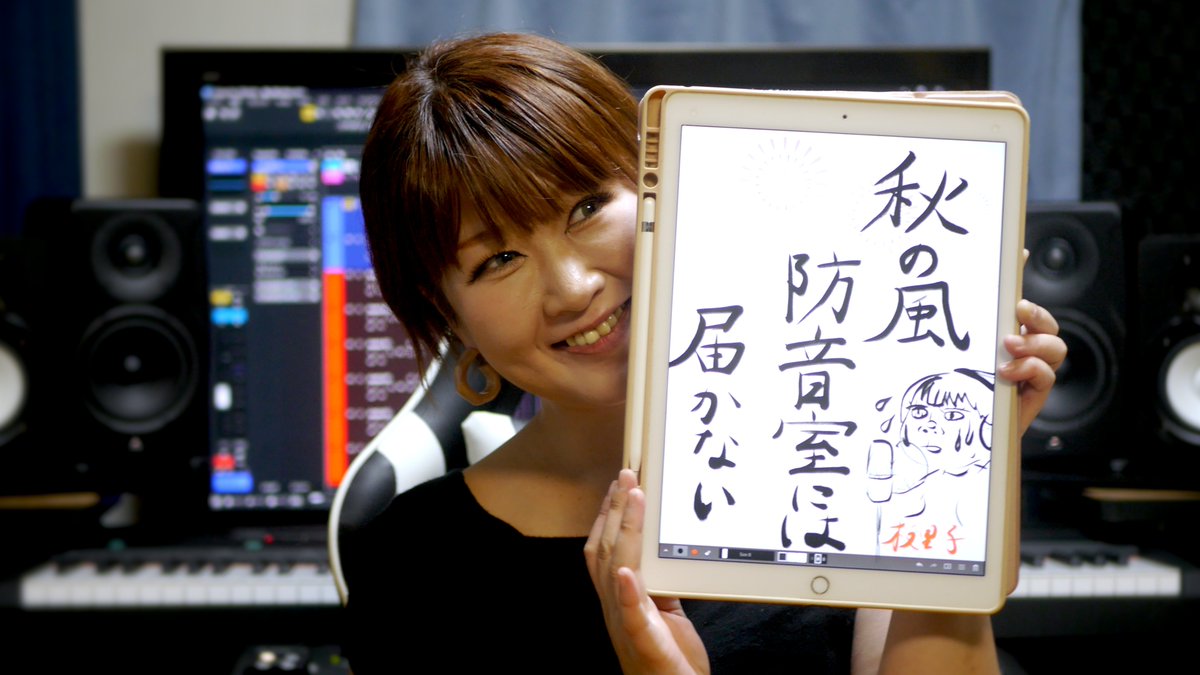 秋の風
防音室には
届かない